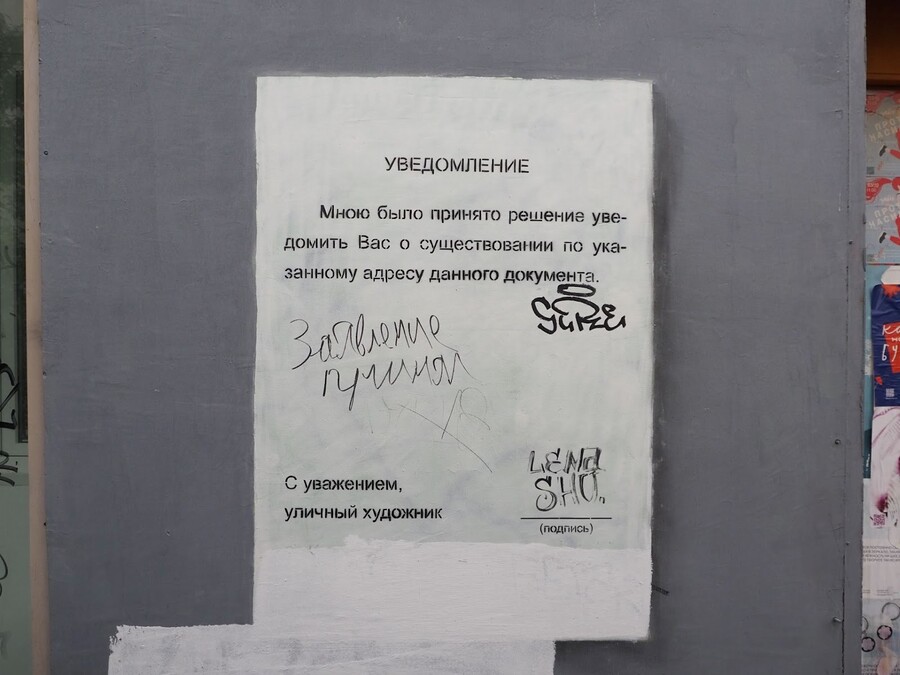 УВЕДОМЛЕНИЕ
Мною было принято решение уве-
домить Вас о существовании по ука-
занному адресу данного документа.
Заявление
принял
С уважением,
уличный художник
LENA
SHU.
(подпись)